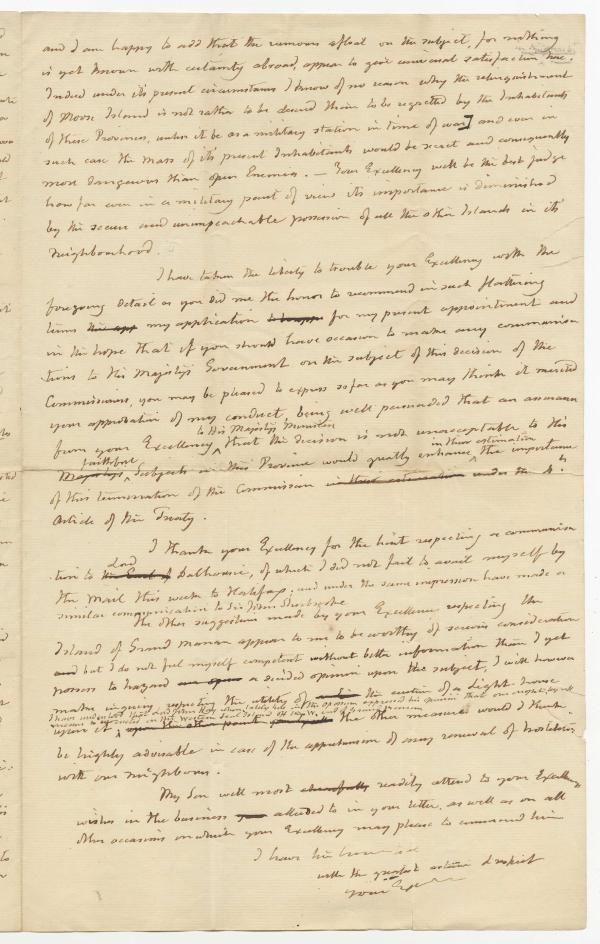 and I am happy to add that the rumours afloat on the subject, for nothing
is yet known with certainty abroad, appear to give universal satisfaction here.
Indeed under its present circumstances I know of no reason why the relinquishment
of Moose Island is not rather to be desired than to be regretted by the Inhabitants
of these Provinces, unless it be as a military station in time of war] and even in
such case the mass of it's present Inhabitants would be secret and consequently
more dangerous than open Enemies. — Your Excellency will be the best judge
how far even in a military point of view its importance is diminished
by the secure and unimpeachable possession of all the other Islands in it's
neighbourhood.
I have taken the liberty to trouble your Excellency with the
foregoing detail as you did me the honor to recommend in such flattering
terms my application for my present appointment and
in the hope that if you should have occasion to make any communica
tions to His Majesty's Government on the subject of this decision of the
Commissioners, you may be pleased to express so far as you may think it merited
your approbation of my conduct, being well persuaded that an assurance
to His Majesty's Ministers
from your Excellency that the decision is not unacceptable to His
faithful in their estimation
Majesty's subjects in this Province would greatly enhance the importance
of this termination of the Commission in their estimation under the 4th
Article of the Treaty.
I thank your Excellency for the hint respecting a communica
Lord
tion to the Earl of Dalhousie, of which I did not fail to avail myself by
the Mail this week to Halifax; and under the same impression have made a
similar communication to Sir John Sherbrooke
The other suggestions made by your Excellency respecting the
Island of Grand Manan appear to me to be worthy of serious consideration
and but I do not feel myself competent without better information than I yet
possess to hazard a decided opinion upon the subject, I will however
make inquiry respecting the utility of the erection of a Light-house
I have understood that lately his opinion that one ought
Western Seal Island
upon it upon the other point the other measure would I think
be highly advisable in case of the apprehension of any renewal of hostilities
with our neighbours.
My Son will most cheerfully readily attend to your Excellency
wishes in the business alluded to in your letter, as well as on all
other occasions on which your Excellency may please to command him
I have the honor
with the greatest esteem & respect
your